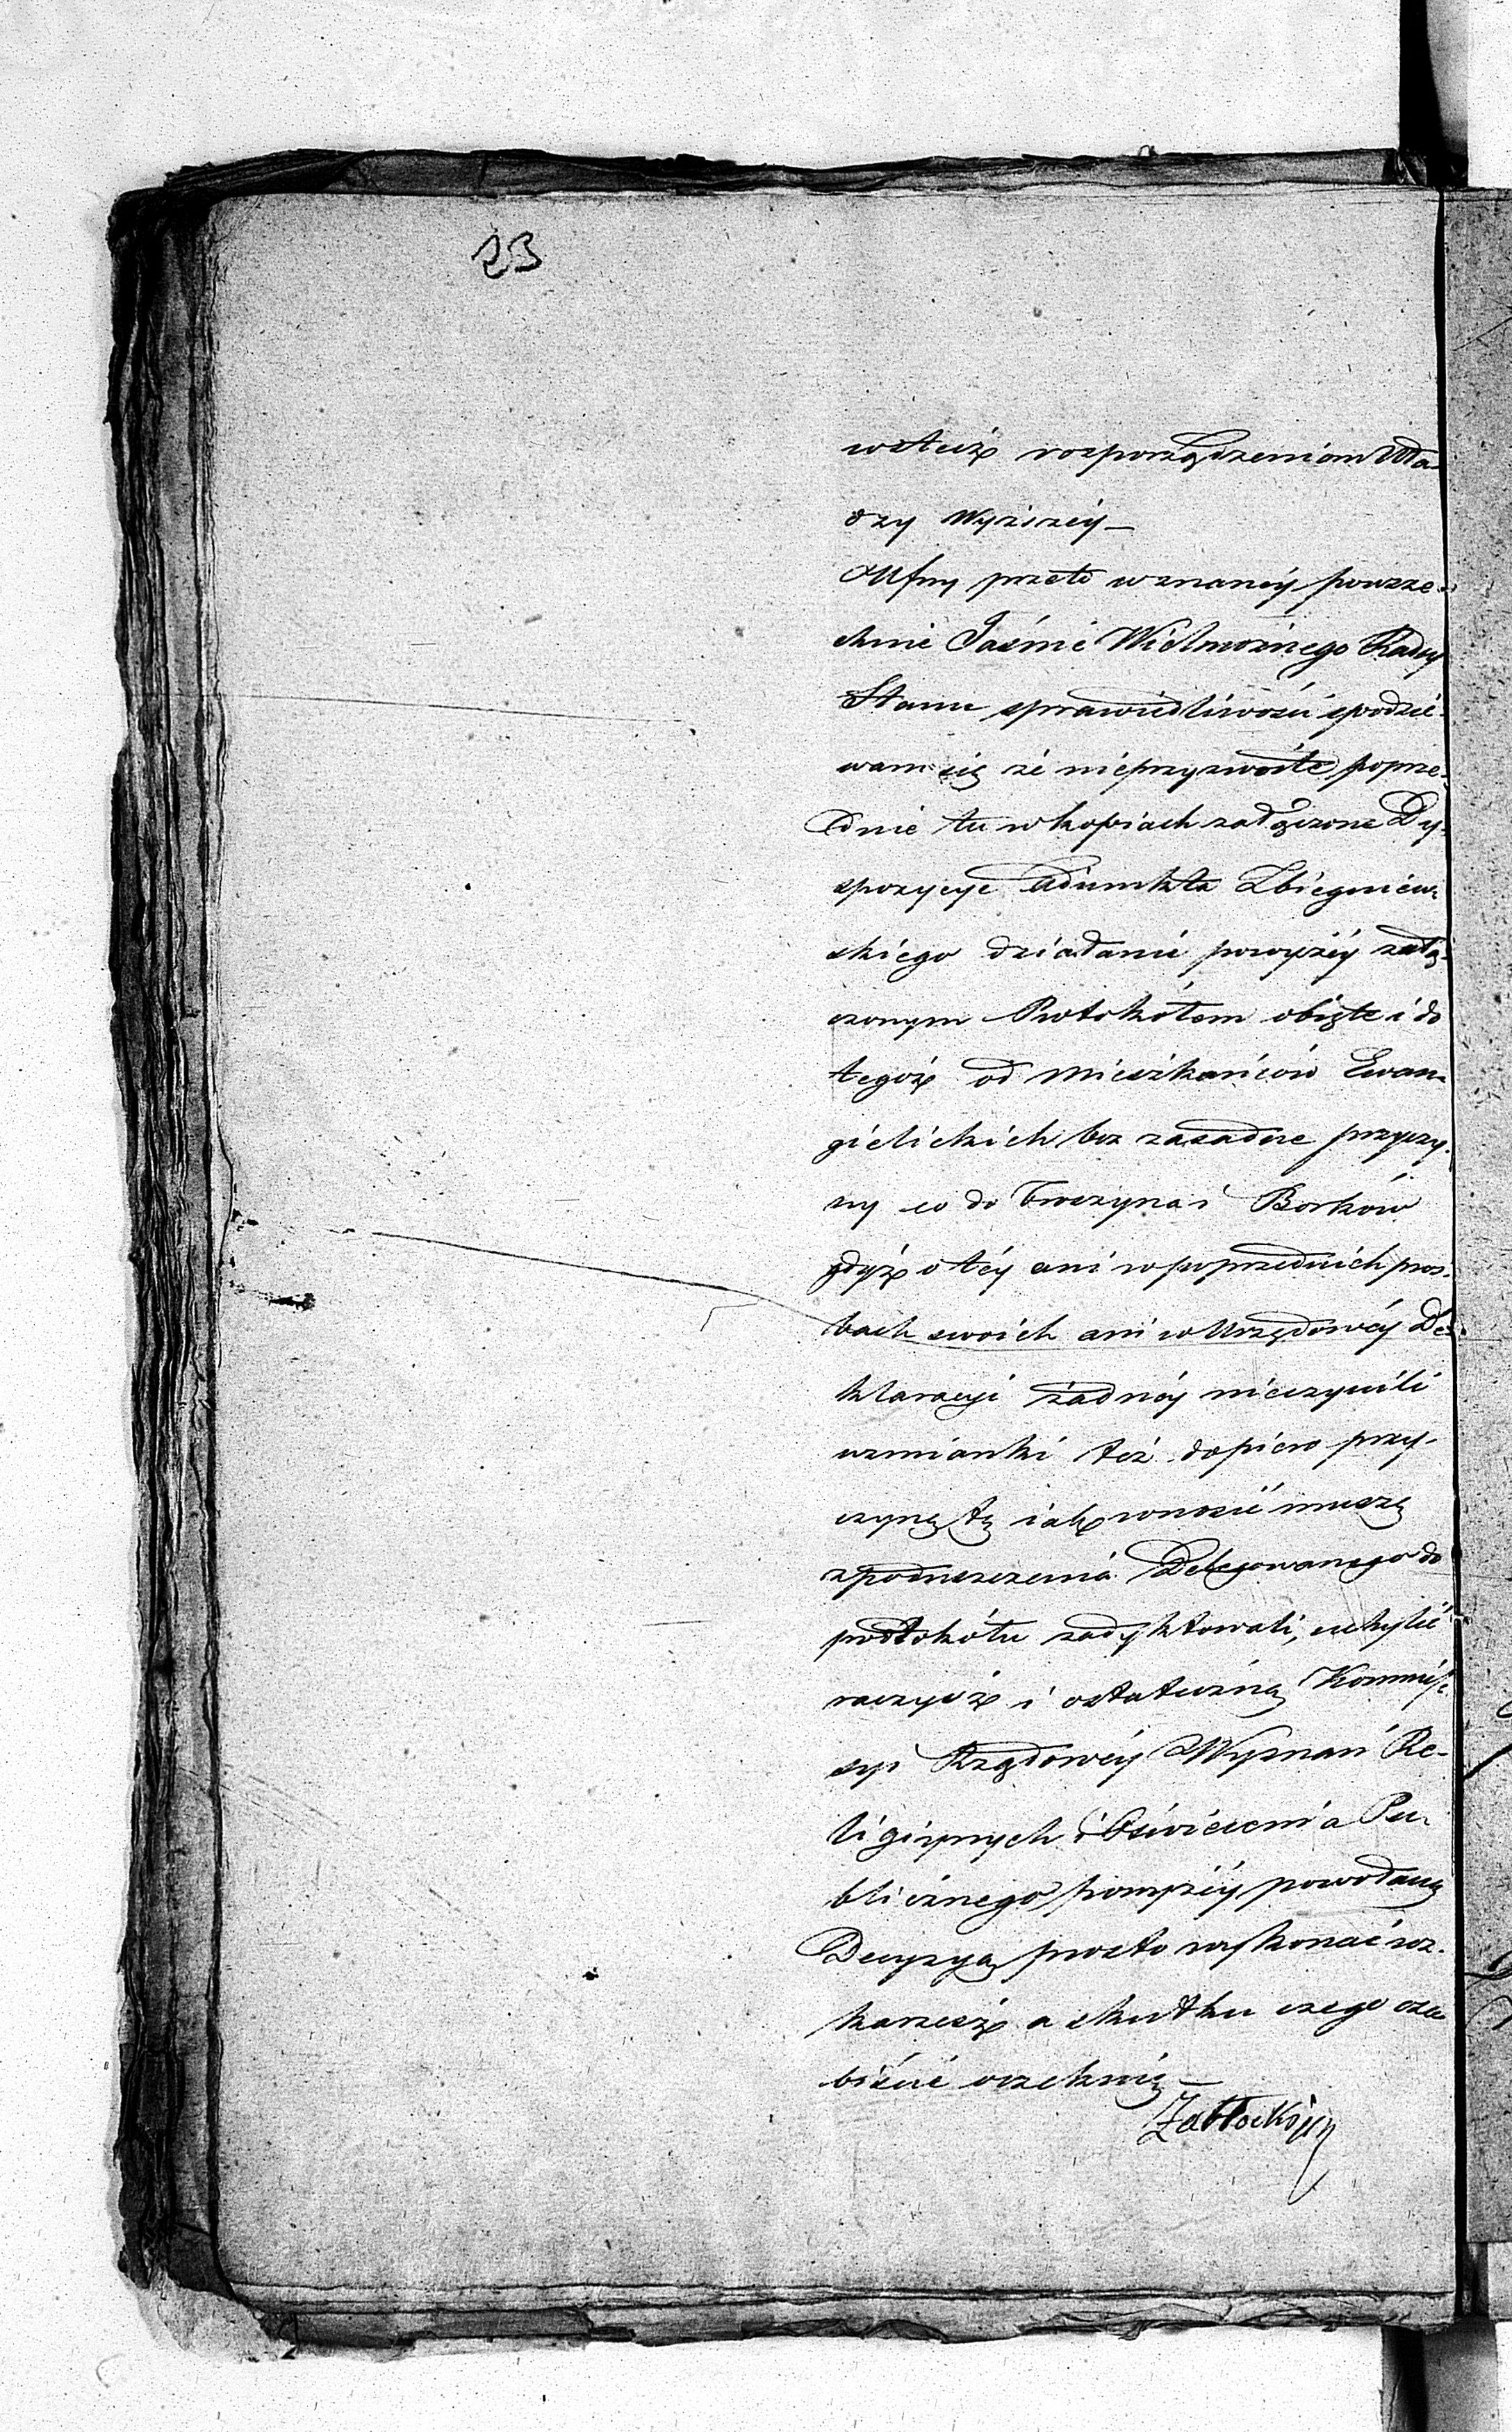 23
wstecz rozporządzeniom Wła-
dzy Wyższéy —
Ufny przeto w znanéy powsze-
chnie Jaśnie Wielmożnego Radcy
Stanu sprawiedliwości spodzie-
wam się że nieprzyzwoite poprze-
dnie tu w kopiach załączone Dy-
spozycye Adiunkta Zbiegniew-
skiego działanie powyżéy załą-
czonym Protokółem obięte i do
tegoż od Mieszkańców Ewan-
gielickich bez zasadne przyczy-
ny co do Troszyna i Borków
gdyż o téy ani w poprzednich proś-
bach swoich ani w Urzędowéy De-
klaracyi żadnéy nieczynili
wzmianki też dopiero przy-
czynę tę iak wnosić muszę
z poduszczenia Delegowanego do
protokółu zadyktowali, uchylić
raczysz i ostateczną Kommis-
syi Rządowéy Wyznań Re-
ligiynych i Oświecenia Pu-
blicznego powyżéy powołaną
Decyzyą prosto wykonać roz-
każesz a skutku czego oso-
biście oczekuię —
Zabłocki